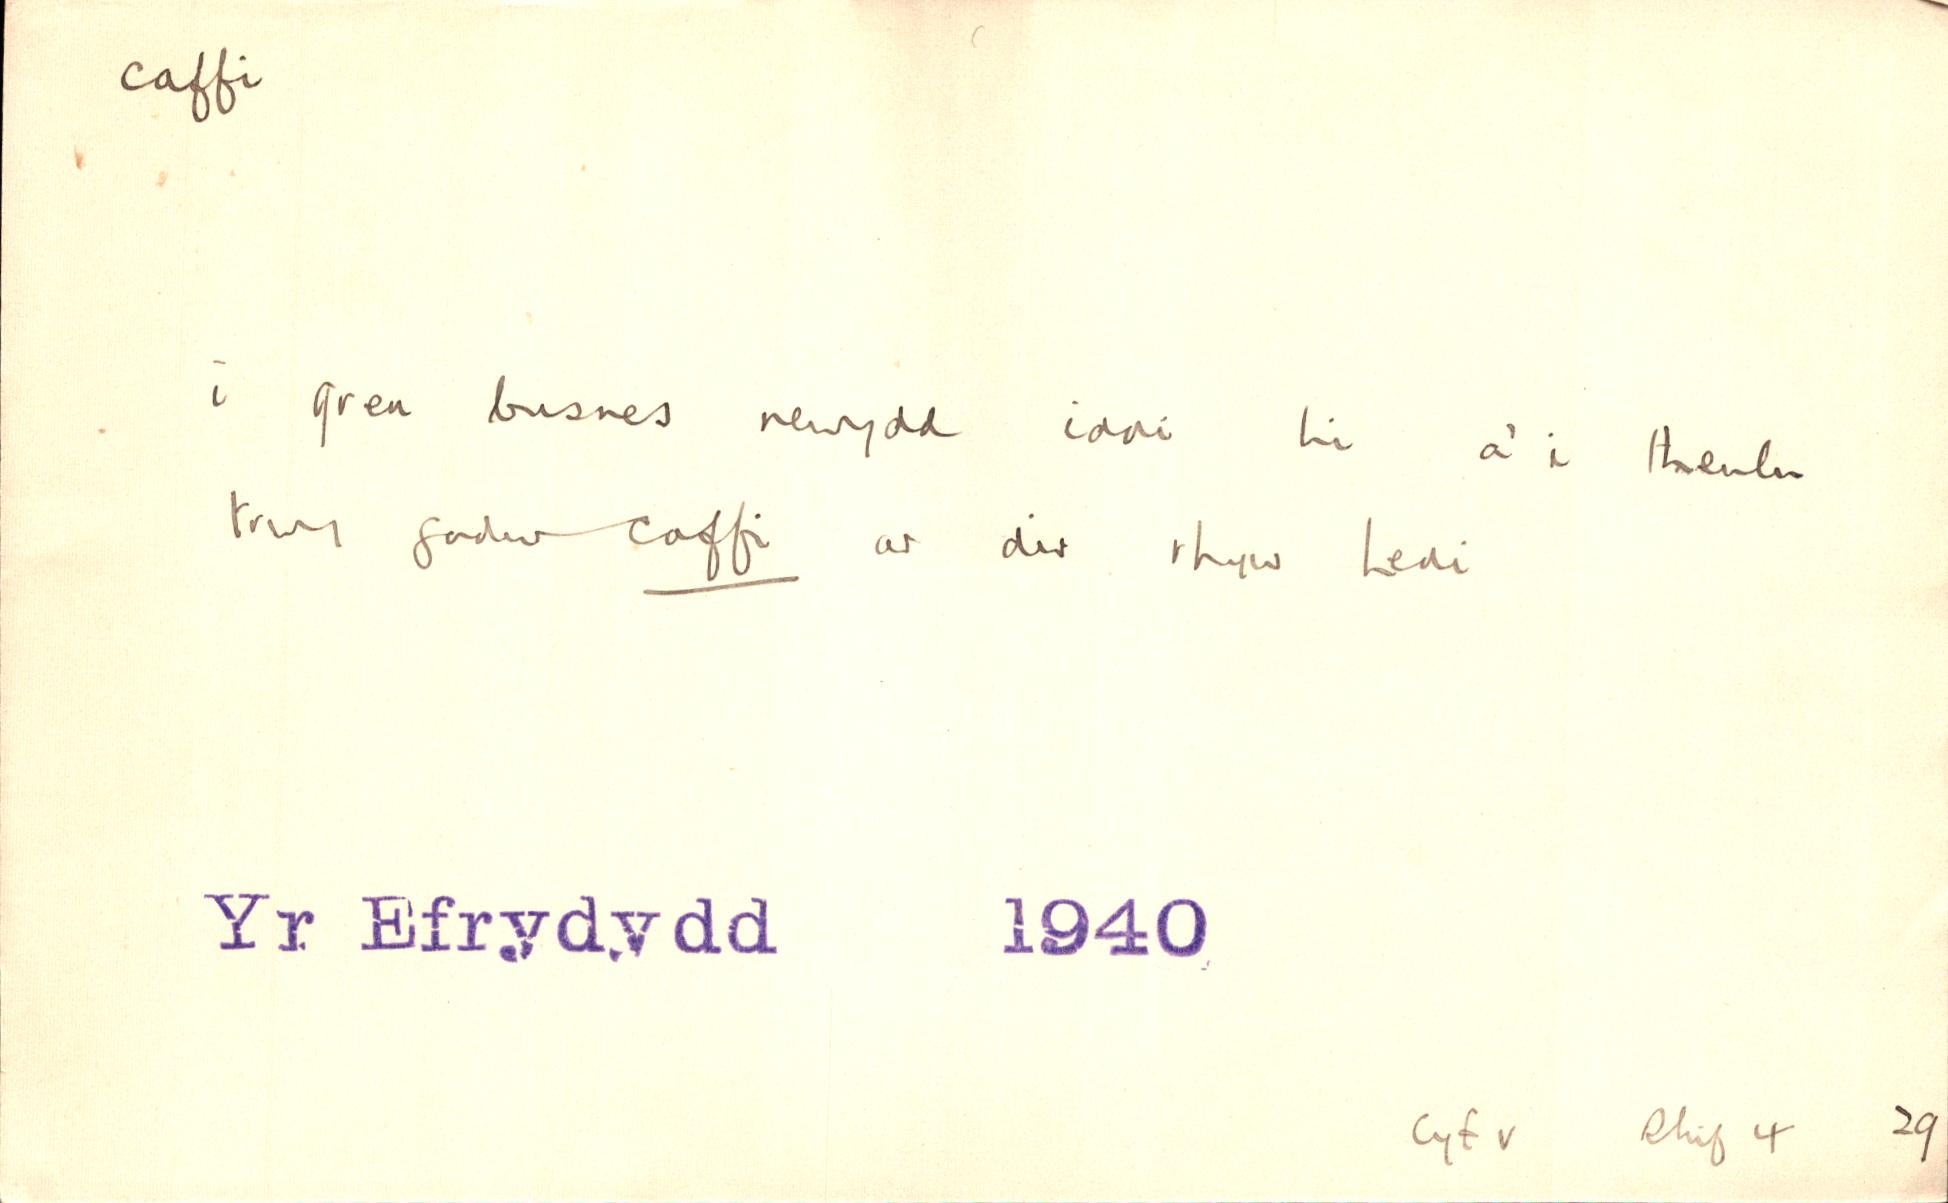 caffi
i greu busnes newydd iddi hi a'i theulu
trwy gadw caffi ar dir rhyw Ledi
Yr Efrydydd 1940
Cyf V Rhif 4 29